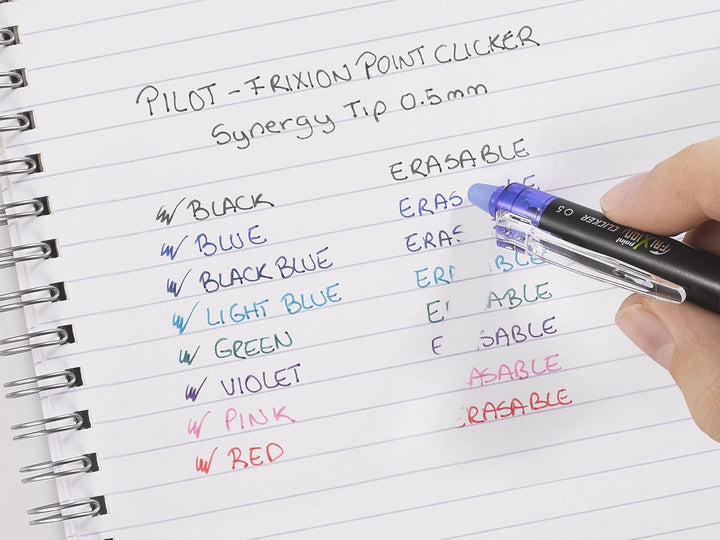 PILOT - FRIXION POINT CLICKER
Synergy Tip 0.5mm
ERASABLE
BLACK ERAS
BLUE ERAS
BLACK BLUE ER BLE
LIGHT BLUE E ABLE
GREEN E SABLE
VIOLET ASABLE
PINK RASABLE
RED
point FRIXION CLICKER 05